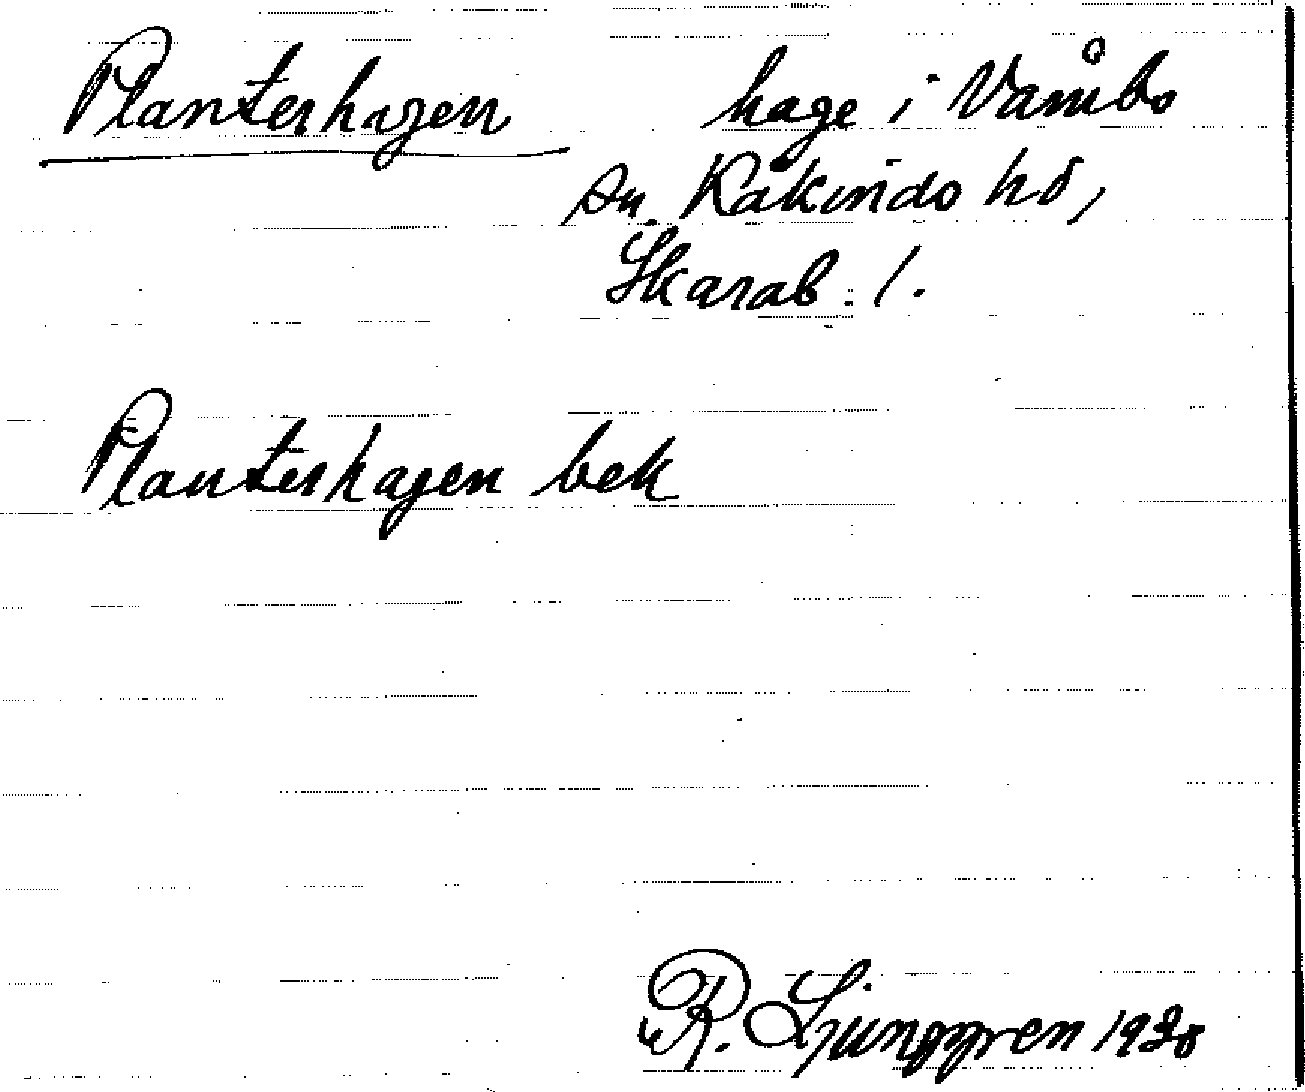 Planterhagen hage i Våmbs
sn. Kåkinds hd,
Skarab. l.
Planterhagen bek
R. Ljunggren 1928